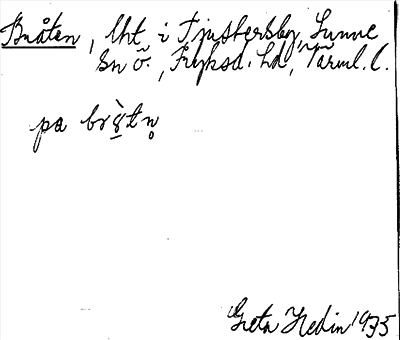 Bråten, lht i Tjustersby, Sunne
Sn ö., Fryksd. hd, Värml. l.
pa brɣ̀tn̥
Greta Hedin 1935